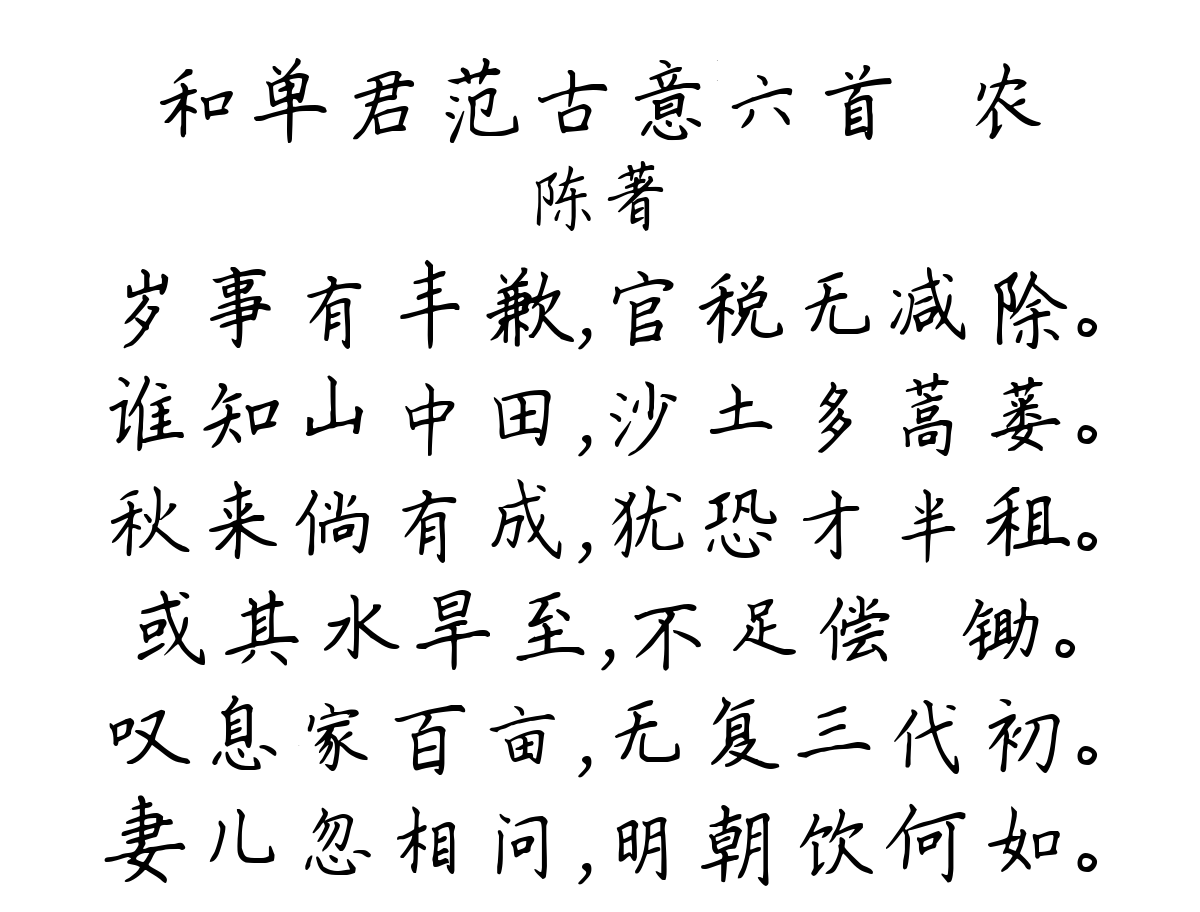 和单君范古意六首 农
陈著
岁事有丰歉,官税无减除。
谁知山中田,沙土多蒿蒌。
秋来倘有成,犹恐才半租。
或其水旱至,不足偿 锄。
叹息家百亩,无复三代初。
妻儿忽相问,明朝饮何如。